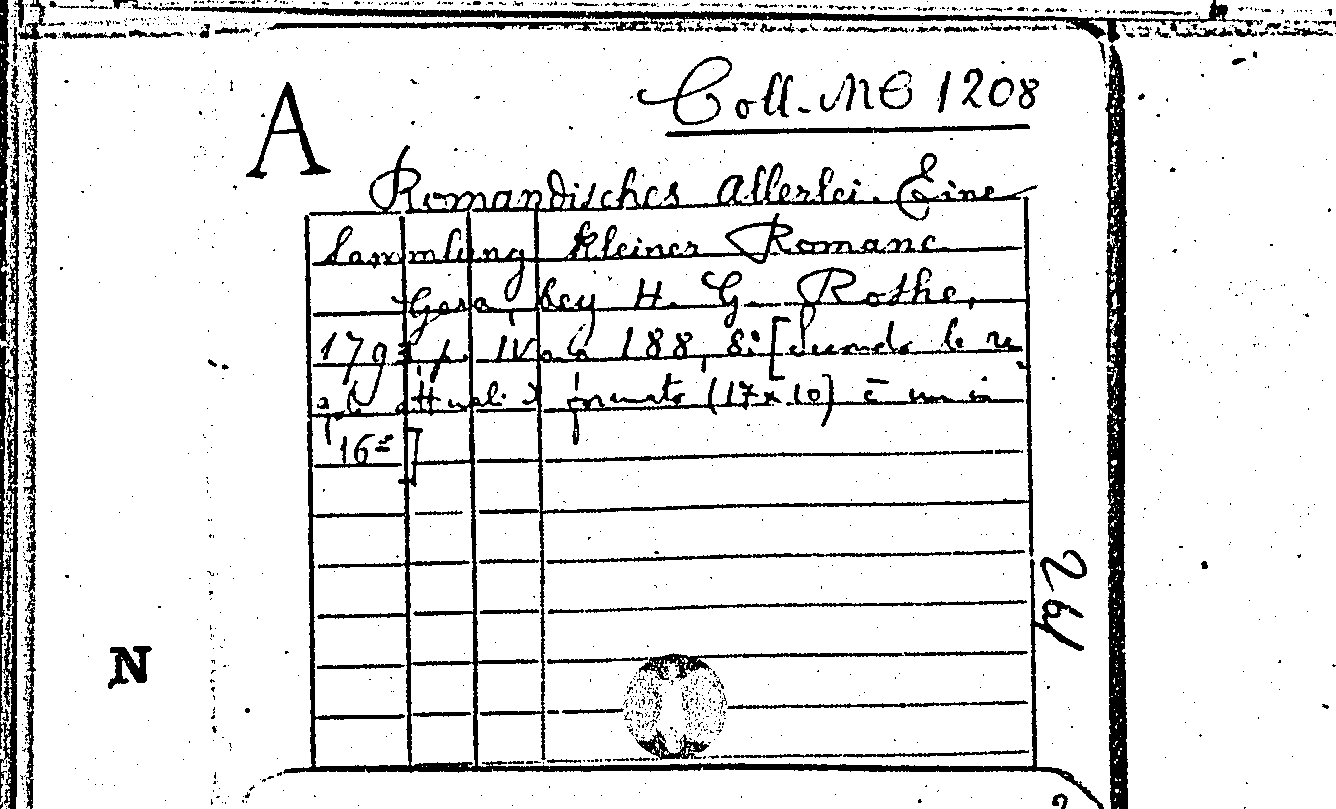 Coll. MO 1208
A
Romandisches Allerlei. Eine
Sammlung kleiner Romane
Gera, bey H. G. Rothe,
179 p. IV 188, 8: [Secondo le re
gole attuali formato (17x10) è un in
16º]
264
N